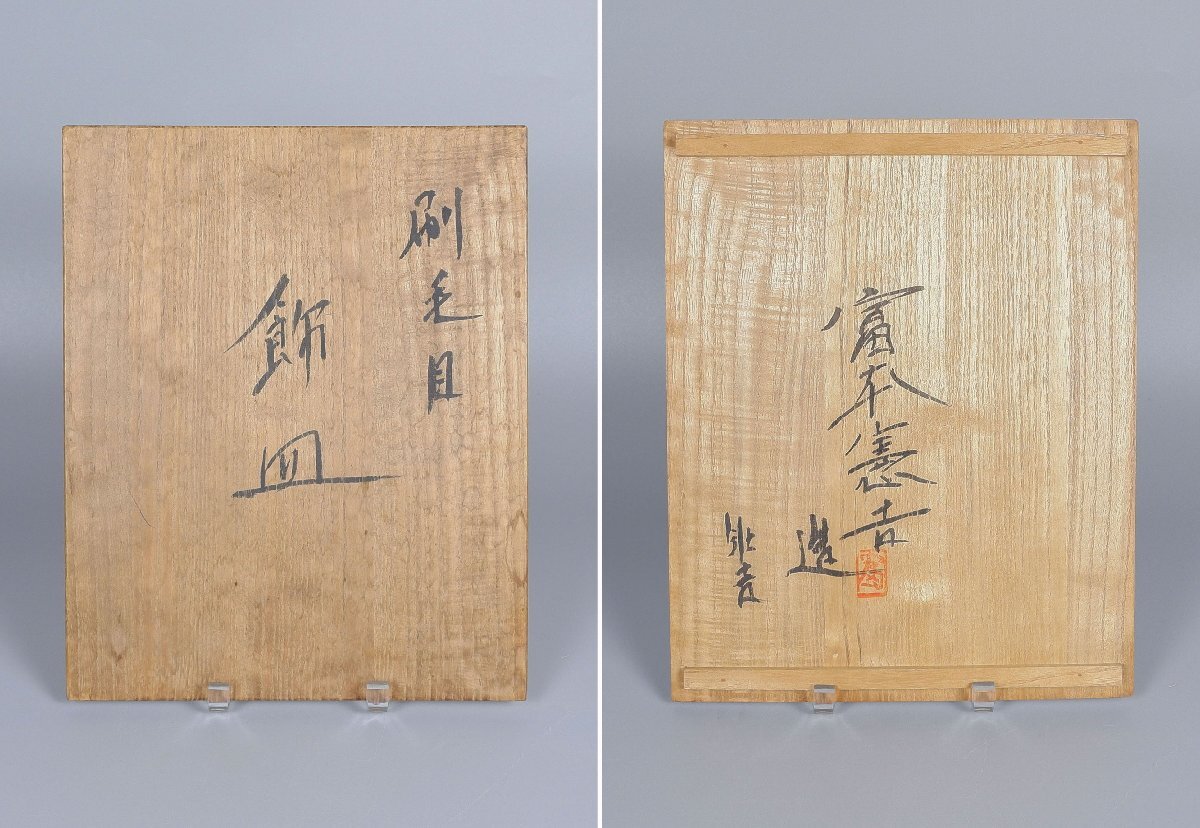 刷毛目
飾皿
富本憲吉
造